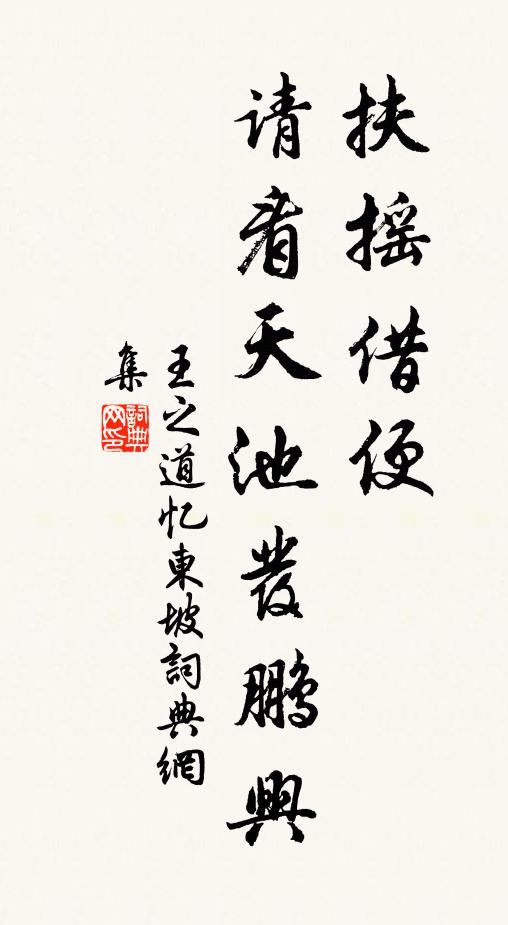 扶摇借便
请看天池发鹏興
王之道忆東坡詞典網
集
詞典
网印